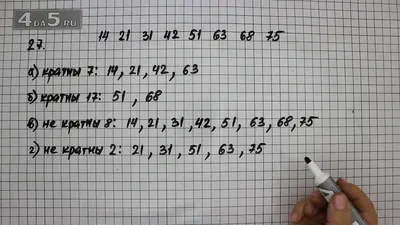 4DA5.RU
14 21 31 42 51 63 68 75
27.
а) кратны 7: 14, 21, 42, 63
б) кратны 17: 51, 68
в) не кратны 8: 14, 21, 31, 42, 51, 63, 68, 75
г) не кратны 2: 21, 31, 51, 63, 75